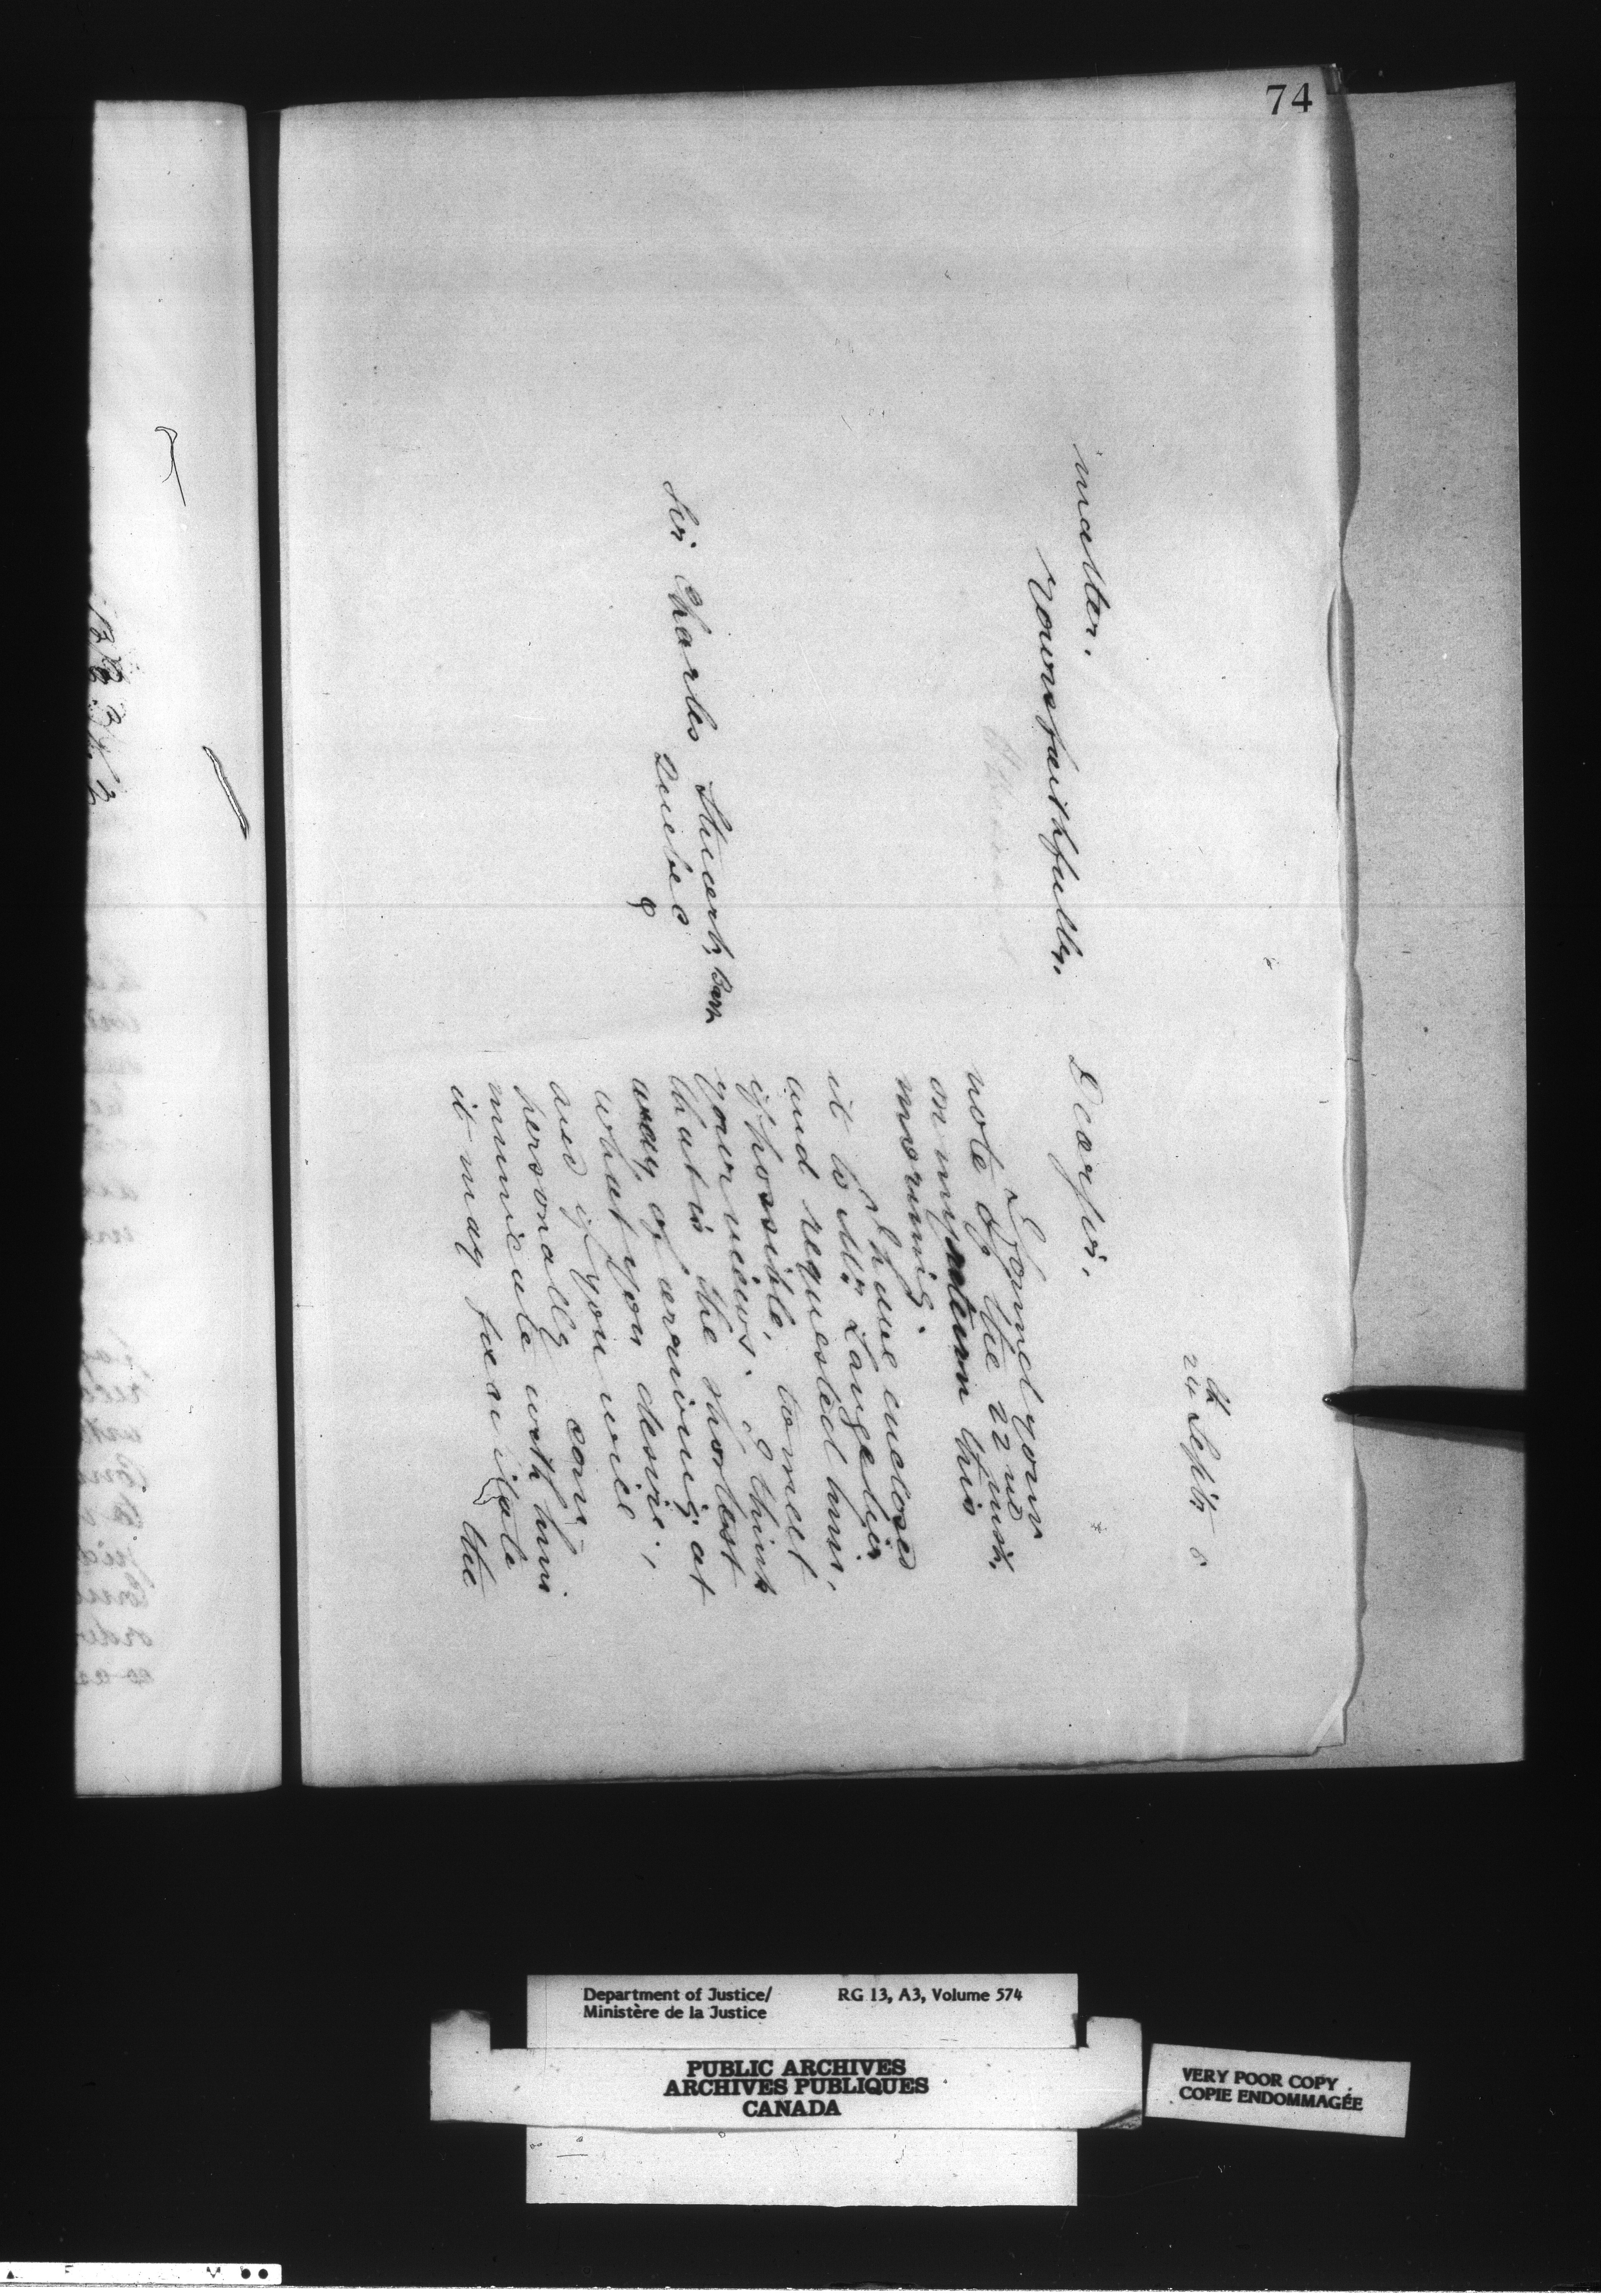 74
24th Sept. 8
Dear Sir,
I found your
note of the 22nd inst.
on my return this
morning.
I have enclosed
it to Mr Langelier
and requested him,
if possible, to meet
your views. I think
that is the shortest
way of arriving at
what you desire,
and if you will
personally com
municate with him
it may facilitate the
matter.
Yours faithfully,
Sir Charles Stuart, Bart
Quebec
Department of Justice/
Ministère de la Justice
RG 13, A3, Volume 574
PUBLIC ARCHIVES
ARCHIVES PUBLIQUES
CANADA
VERY POOR COPY
COPIE ENDOMMAGÉE